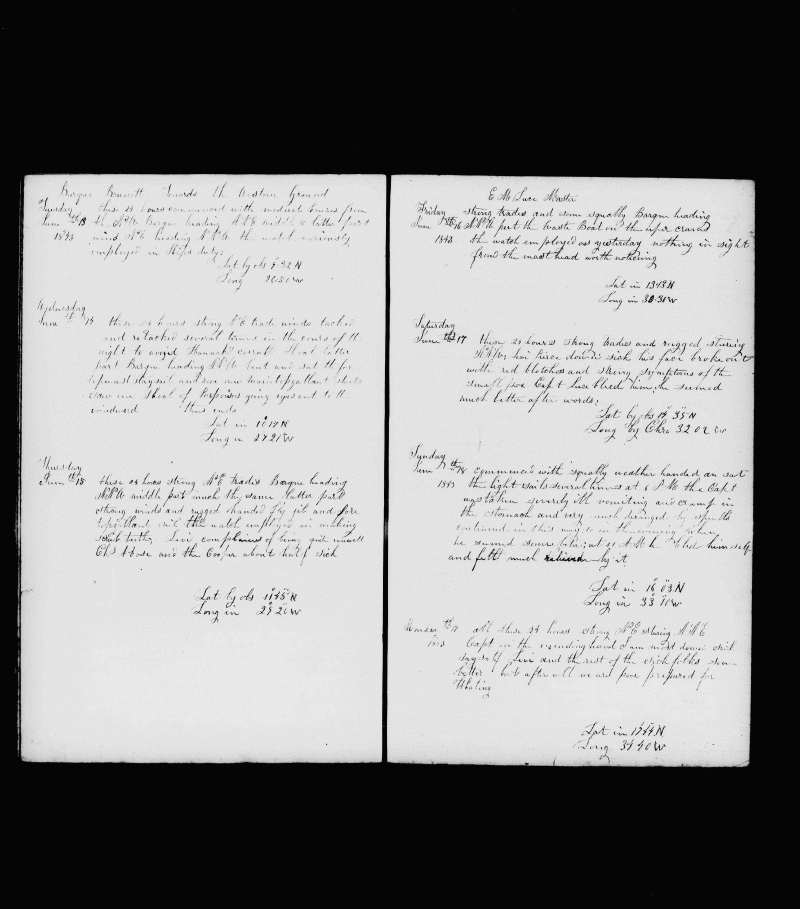 Barque Towards the Western Ground
Tuesday these 24 hours commenced with moderate breezes from
June 13 the NE Barque heading NNE middle & latter part
1843 wind NE heading NNW the watch variously
employed in Ships duty.
Lat by obs 8 32 N
Long 26 50 W
Wednesday
June 14 these 24 hours strong NE trade winds tacked
and retacked several times in the course of the
night to avoid Shoal latter
part Barque heading NNW bent and set the for
topmast staysail and main topgallant
Saw Shoal of Porpoises going eyes out to
windward thus ends
Lat in 10 19 N
Long in 27 21 W
Thursday
June 15 these 24 hours strong NE trades Barque heading
NNW middle part much the same latter part
strong winds and rugged handed fly jib and fore
topgallant sail the watch employed in making
Levi complained of being quite unwell
Chs Rose and the Cooper about half sick
Lat by obs 11 45 N
Long in 29 20 W
E M Luce Master
Friday strong trades and some squally Barque heading
June 16 NNW put the Waste Boat on the uper cranes
1843 the watch employed as yesterday nothing in sight
from the masthead worth noticeing
Lat in 13 13 N
Long in 30 31 W
Saturday
June 17 these 24 hours strong trades and rugged steering
NNW Levi down sick his face broke out
with red blotches and strong symptoms of the
small pox Capt Luce bleed him, he seemed
much better after words;
Lat by obs 14 35 N
Long by Chro 32 02 W
Sunday
June 18 commenced with squally weather handed and set
1843 the light sails several times at 6 PM the Capt
was taken severely ill vomiting and cramp in
the Stomach and very much deranged by
continued in this way so in the evening when
he seemed some better; at 10 AM he bled himself
and felt much relieved by it
Lat in 16 03 N
Long in 33 10 W
Monday 19 all these 24 hours strong NE steering NNE
1843 Capt on the mending hand I am most down sick
myself Levi and the rest of the sick folks some
better but after all we are poor prepared for
Whaling
Lat in 17 44 N
Long 34 40 W